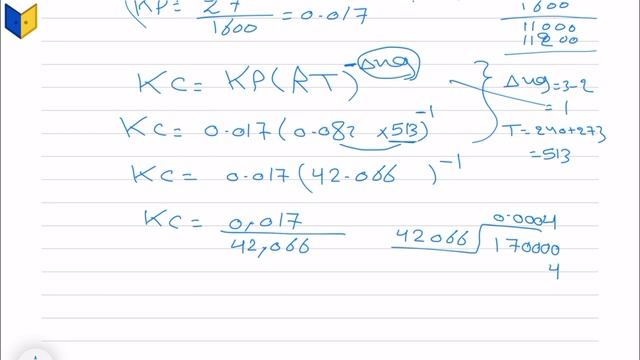 KP = 27/1600 = 0.017
1600
11000
11200
KC = KP(RT)^-Δng
Δng = 3-2
= 1
KC = 0.017(0.082 × 513)^-1
T = 240+273
= 513
KC = 0.017(42.066)^-1
KC = 0,017/42,066
0.0004
42066 170000
4